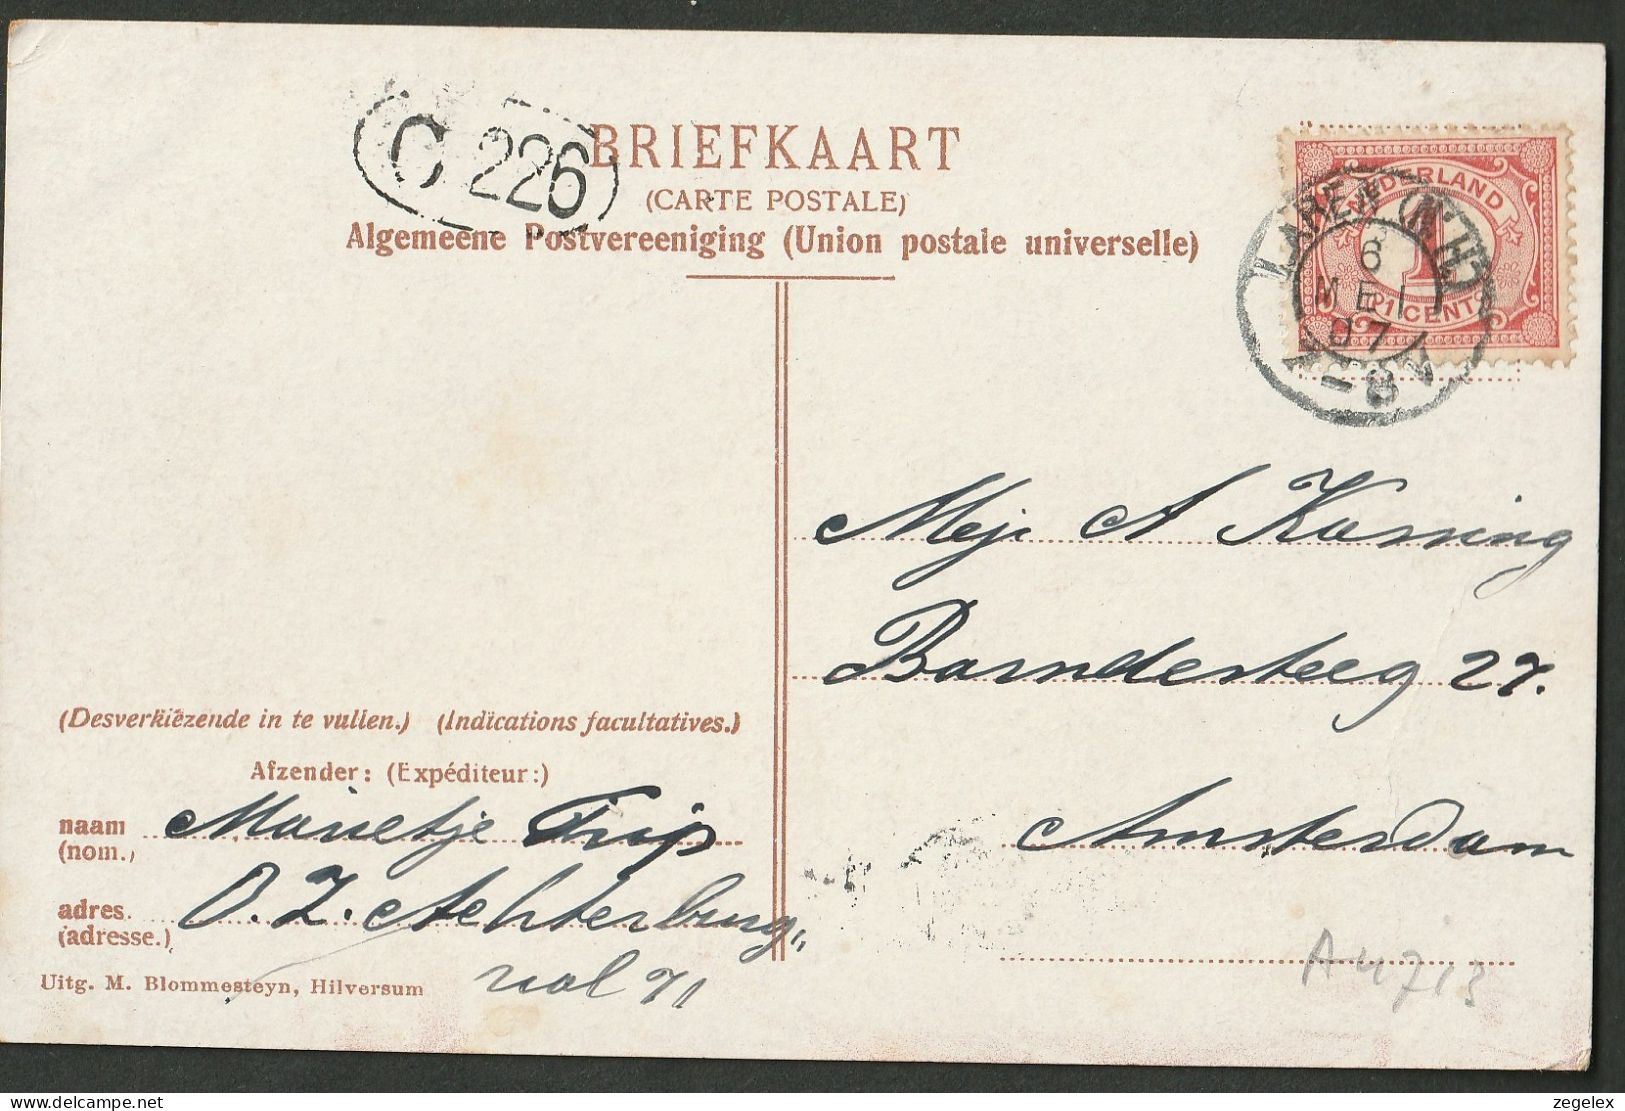 C 226
BRIEFKAART
(CARTE POSTALE)
Algemeene Postvereeniging (Union postale universelle)
NEDERLAND
1
1 CENT
LAREN (N.H.)
6
MEI
07
Mej A Konning
Barndesteeg 27.
Amsterdam
(Desverkiezende in te vullen.) (Indications facultatives.)
Afzender: (Expéditeur:)
naam Marietje Trip
(nom.)
adres. O. Z. Achterburg,,
(adresse.)
wal 71
Uitg. M. Blommesteyn, Hilversum
A 4713
zegelex